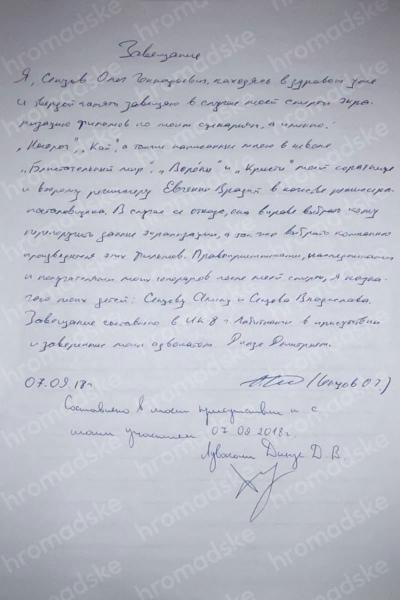 Завещание
Я, Сенцов Олег Геннадьевич, находясь в здравом уме
и твердой памяти завещаю в случае моей смерти экра-
низацию фильмов по моим сценариям, а именно:
"Кай", а также написанные мною в неволе
и "Кристи" моей соратнице
и второму режиссеру Евгении Врадий в качестве режиссера-
постановщика. В случае ее отказа, она вправе выбрать кому
передать данные экранизации, а так же выбрать компанию
этих фильмов. Правоприемниками, наследниками
и получателями моих гонораров после моей смерти, я назна-
чаю моих детей: Сенцову Алину и Сенцова Владислава.
Завещание составлено в ИК 8 г. Лабытнанги в присутствии
и заверенное моим адвокатом Динзе Дмитрием.
07.09.18г. (Сенцов О.Г.)
Составлено в моем присутствии и с
моим участием 07.09.2018г.
Адвокат Динзе Д.В.
hromadske